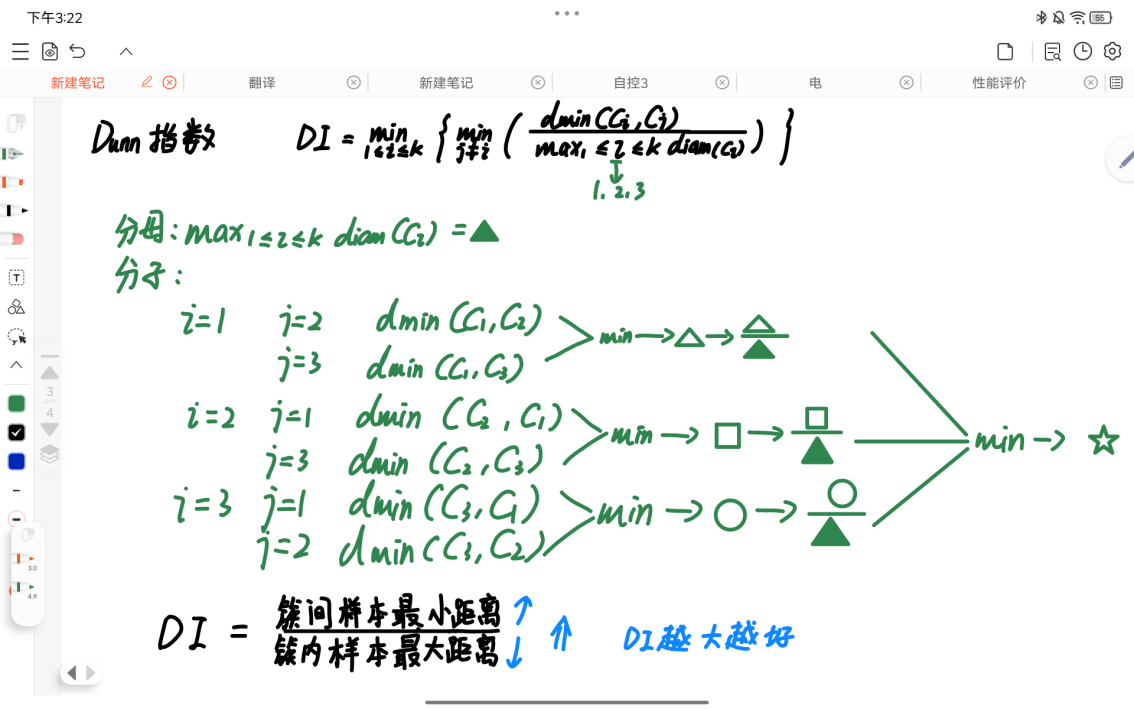 下午3:22
55
新建笔记 翻译 新建笔记 自控3 电 性能评价
Dunn指数 DI = min 1≤i≤k { min j≠i ( dmin(Ci,Cj) / max1≤l≤k diam(Cl) ) }
1. 2. 3
分母: max1≤l≤k diam(Cl) = ▲
分子:
i=1 j=2 dmin(C1,C2)
min → △ → △/▲
j=3 dmin(C1,C3)
i=2 j=1 dmin(C2,C1)
min → □ → □/▲
min → ☆
j=3 dmin(C2,C3)
i=3 j=1 dmin(C3,C1)
min → ○ → ○/▲
j=2 dmin(C3,C2)
DI = 簇间样本最小距离 ↑
簇内样本最大距离 ↓
⇑ DI越大越好
3
4
T
3.0
4.9